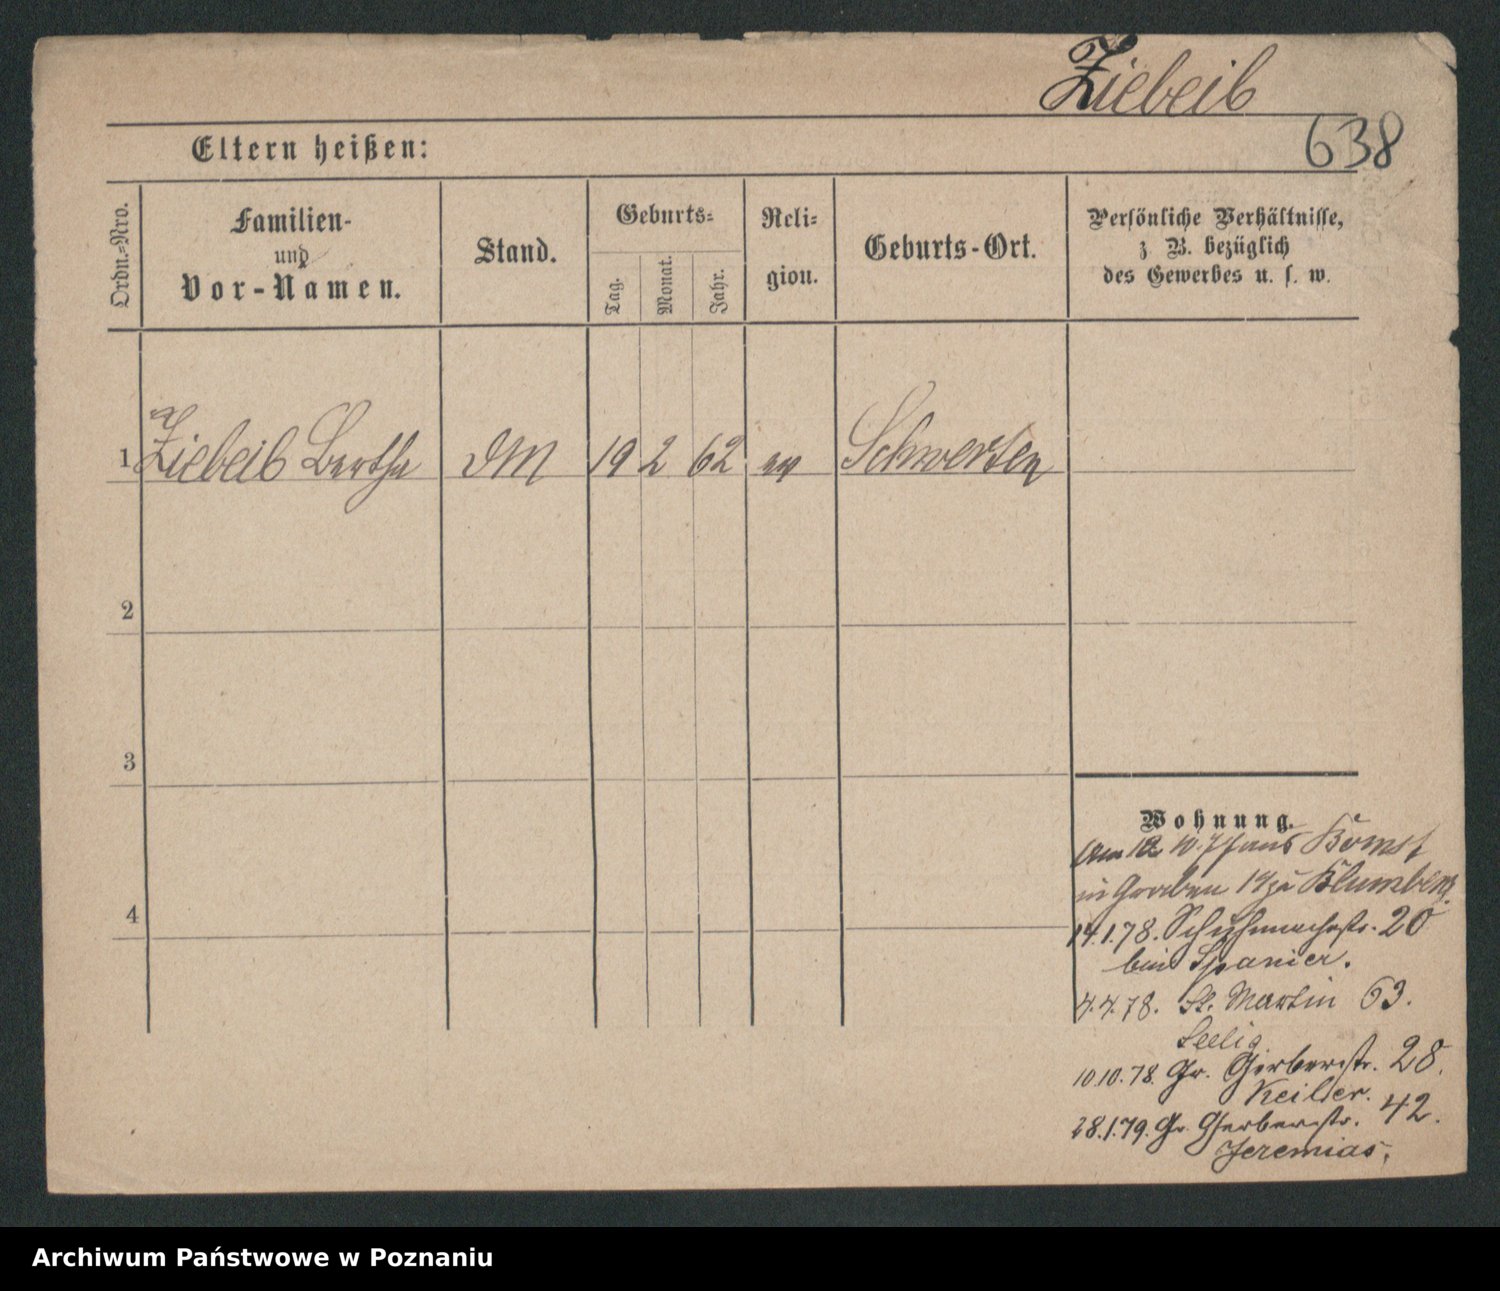 Ziebeil
638
Eltern heißen:
Ordn.=Nro.
Familien-
und
Vor-Namen.
Stand.
Geburts=
Tag.
Monat.
Jahr.
Reli=
gion.
Geburts-Ort.
Persönliche Verhältnisse,
z. B. bezüglich
des Gewerbes u. s. w.
1 Ziebeil Bertha DM 19 2 62 ev Schwersen
2
3
4
Wohnung.
am 12 10 77 aus Bomst
in Graben 14 zu Blumberg.
14.1.78. Schuhmacherstr. 20
bei Spanier.
4.4.78. St. Martin 63.
Seelig.
10.10.78. Gr. Gerberstr. 28.
Keiller.
28.1.79. Gr. Gerberstr. 42.
Jeremias.
Archiwum Państwowe w Poznaniu